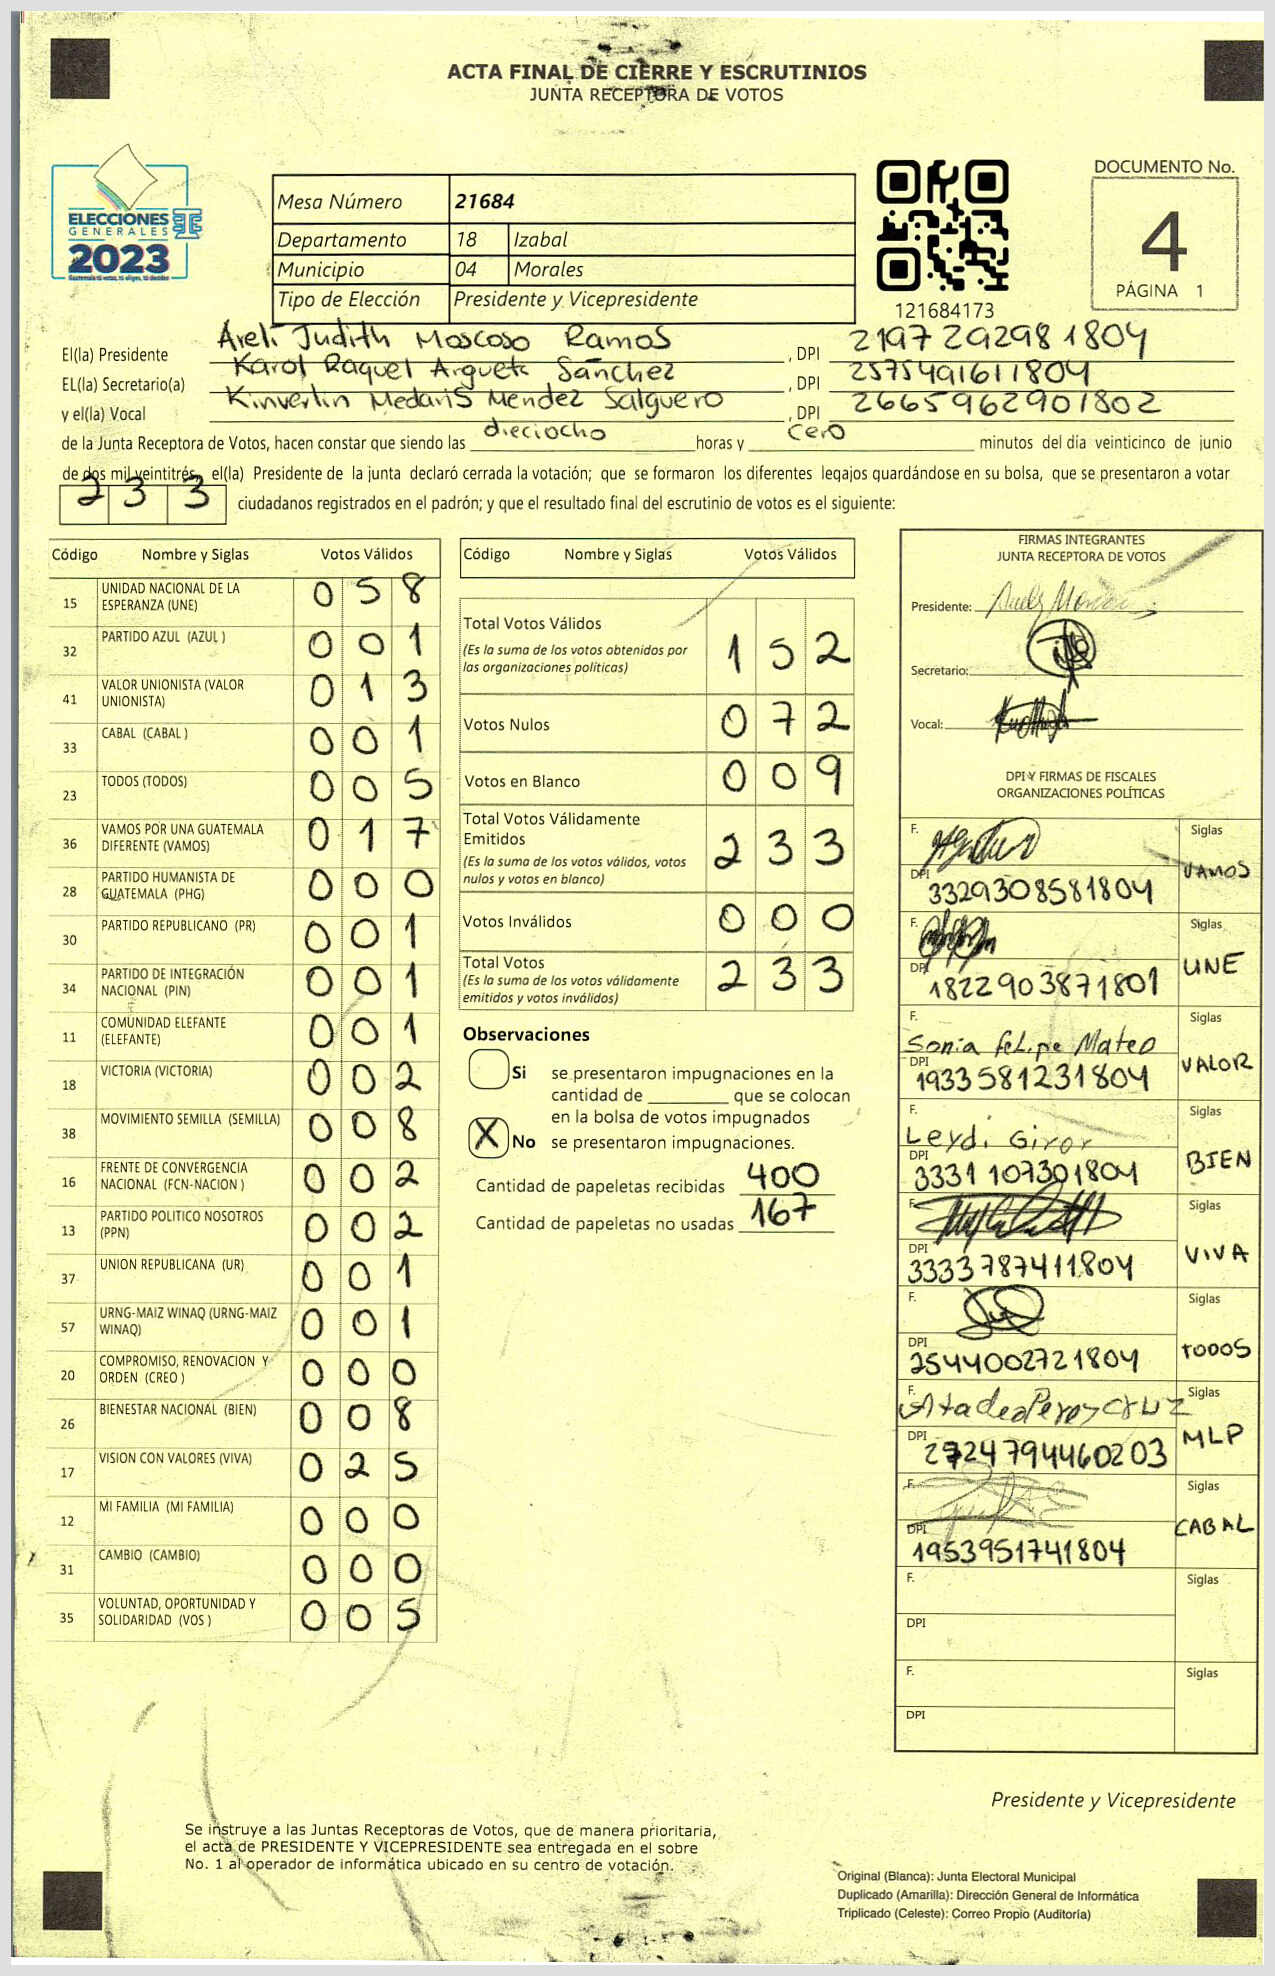 ACTA FINAL DE CIERRE Y ESCRUTINIOS
JUNTA RECEPTORA DE VOTOS
ELECCIONES
GENERALES
2023
Mesa Número 21684
Departamento 18 Izabal
Municipio 04 Morales
Tipo de Elección Presidente y Vicepresidente
121684173
DOCUMENTO No.
4
PÁGINA 1
El(la) Presidente Areli Judith Moscoso Ramos , DPI 2197292981804
EL(la) Secretario(a) Karol Raquel Argueta Sánchez , DPI 2575491611804
y el(la) Vocal Kinverlin Medaris Mendez Salguero , DPI 2665962901802
de la Junta Receptora de Votos, hacen constar que siendo las dieciocho horas y cero minutos del día veinticinco de junio
de dos mil veintitrés, el(la) Presidente de la junta declaró cerrada la votación; que se formaron los diferentes legajos guardándose en su bolsa, que se presentaron a votar
233 ciudadanos registrados en el padrón; y que el resultado final del escrutinio de votos es el siguiente:
Código Nombre y Siglas Votos Válidos
15 UNIDAD NACIONAL DE LA ESPERANZA (UNE) 058
32 PARTIDO AZUL (AZUL ) 001
41 VALOR UNIONISTA (VALOR UNIONISTA) 013
33 CABAL (CABAL ) 001
23 TODOS (TODOS) 005
36 VAMOS POR UNA GUATEMALA DIFERENTE (VAMOS) 017
28 PARTIDO HUMANISTA DE GUATEMALA (PHG) 000
30 PARTIDO REPUBLICANO (PR) 001
34 PARTIDO DE INTEGRACIÓN NACIONAL (PIN) 001
11 COMUNIDAD ELEFANTE (ELEFANTE) 001
18 VICTORIA (VICTORIA) 002
38 MOVIMIENTO SEMILLA (SEMILLA) 008
16 FRENTE DE CONVERGENCIA NACIONAL (FCN-NACION ) 002
13 PARTIDO POLITICO NOSOTROS (PPN) 002
37 UNION REPUBLICANA (UR) 001
57 URNG-MAIZ WINAQ (URNG-MAIZ WINAQ) 001
20 COMPROMISO, RENOVACION Y ORDEN (CREO ) 000
26 BIENESTAR NACIONAL (BIEN) 008
17 VISION CON VALORES (VIVA) 025
12 MI FAMILIA (MI FAMILIA) 000
31 CAMBIO (CAMBIO) 000
35 VOLUNTAD, OPORTUNIDAD Y SOLIDARIDAD (VOS ) 005
Código Nombre y Siglas Votos Válidos
Total Votos Válidos 152
(Es la suma de los votos obtenidos por
las organizaciones políticas)
Votos Nulos 072
Votos en Blanco 009
Total Votos Válidamente
Emitidos 233
(Es la suma de los votos válidos, votos
nulos y votos en blanco)
Votos Inválidos 000
Total Votos 233
(Es la suma de los votos válidamente
emitidos y votos inválidos)
Observaciones
Si se presentaron impugnaciones en la
cantidad de ________ que se colocan
en la bolsa de votos impugnados
X No se presentaron impugnaciones.
Cantidad de papeletas recibidas 400
Cantidad de papeletas no usadas 167
FIRMAS INTEGRANTES
JUNTA RECEPTORA DE VOTOS
Presidente:
Secretario:
Vocal:
DPI Y FIRMAS DE FISCALES
ORGANIZACIONES POLÍTICAS
F. Siglas
DPI 3329308581804 VAMOS
F. Siglas
DPI 1822903871801 UNE
F. Sonia Felipe Mateo Siglas
DPI 1933581231804 VALOR
F. Leydi Giror Siglas
DPI 3331 107301804 BIEN
F. Siglas
DPI 3333787411804 VIVA
F. Siglas
DPI 2544002721804 TODOS
F. Siglas
DPI 2724794460203 MLP
F. Siglas
DPI 1953951741804 CABAL
F. Siglas
DPI
F. Siglas
DPI
Presidente y Vicepresidente
Se instruye a las Juntas Receptoras de Votos, que de manera prioritaria,
el acta de PRESIDENTE Y VICEPRESIDENTE sea entregada en el sobre
No. 1 al operador de informática ubicado en su centro de votación.
Original (Blanca): Junta Electoral Municipal
Duplicado (Amarilla): Dirección General de Informática
Triplicado (Celeste): Correo Propio (Auditoría)